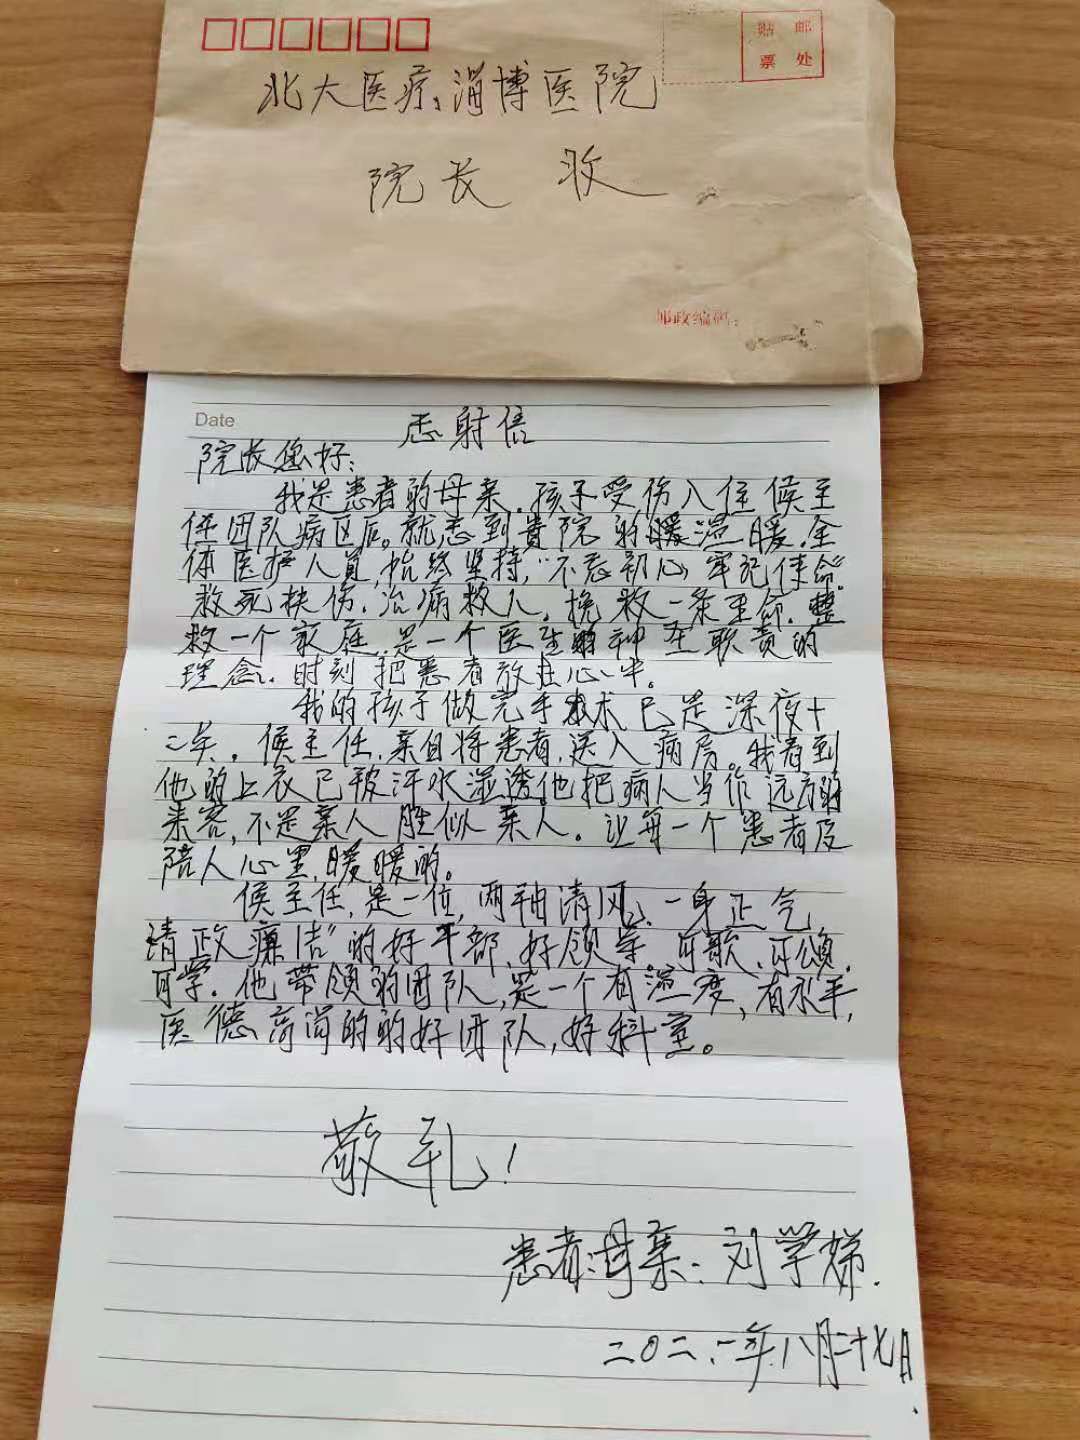 贴 邮
票 处
北大医疗、淄博医院
院长 收
邮政编码:
Date
感谢信
院长您好:
我是患者的母亲.孩子受伤入住候主
任团队病区后。就感到貴院的暖温暖.全
体医护人員,始终坚持,“不忘初心,牢记使命”
救死扶伤.治病救人,挽救一条生命.整
救一个家庭.是一个医生的神圣职责的
理念.时刻把患者放在心中。
我的孩子做完手术已是深夜十
二点.候主任,亲自将患者,送入病房。我看到
他的上衣已被汗水湿透.他把病人当作远方的
来客,不是亲人胜似亲人。让每一个患者及
陪人心里,暖暖的。
候主任,是一位,两袖清风、一身正气
清政廉洁”的好干部、好领导.可歌、可颂.
可学.他带领的团队,是一个有温度,有水平,
医德高尚的的好团队,好科室。
敬礼!
患者:母亲:刘学娣.
二〇二.一年.八月二十七日